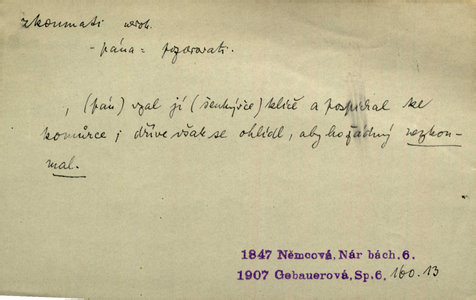 zkoumati nedok.
- pána = pozorovati.
, (pán) vzal jí (šenkýřce) klíč a pospíchal ke
komůrce; dříve však se ohlédl, aby ho žádný nezkou-
mal.
1847 Němcová, Nár bách.6.
1907 Gebauerová, Sp.6, 160.13